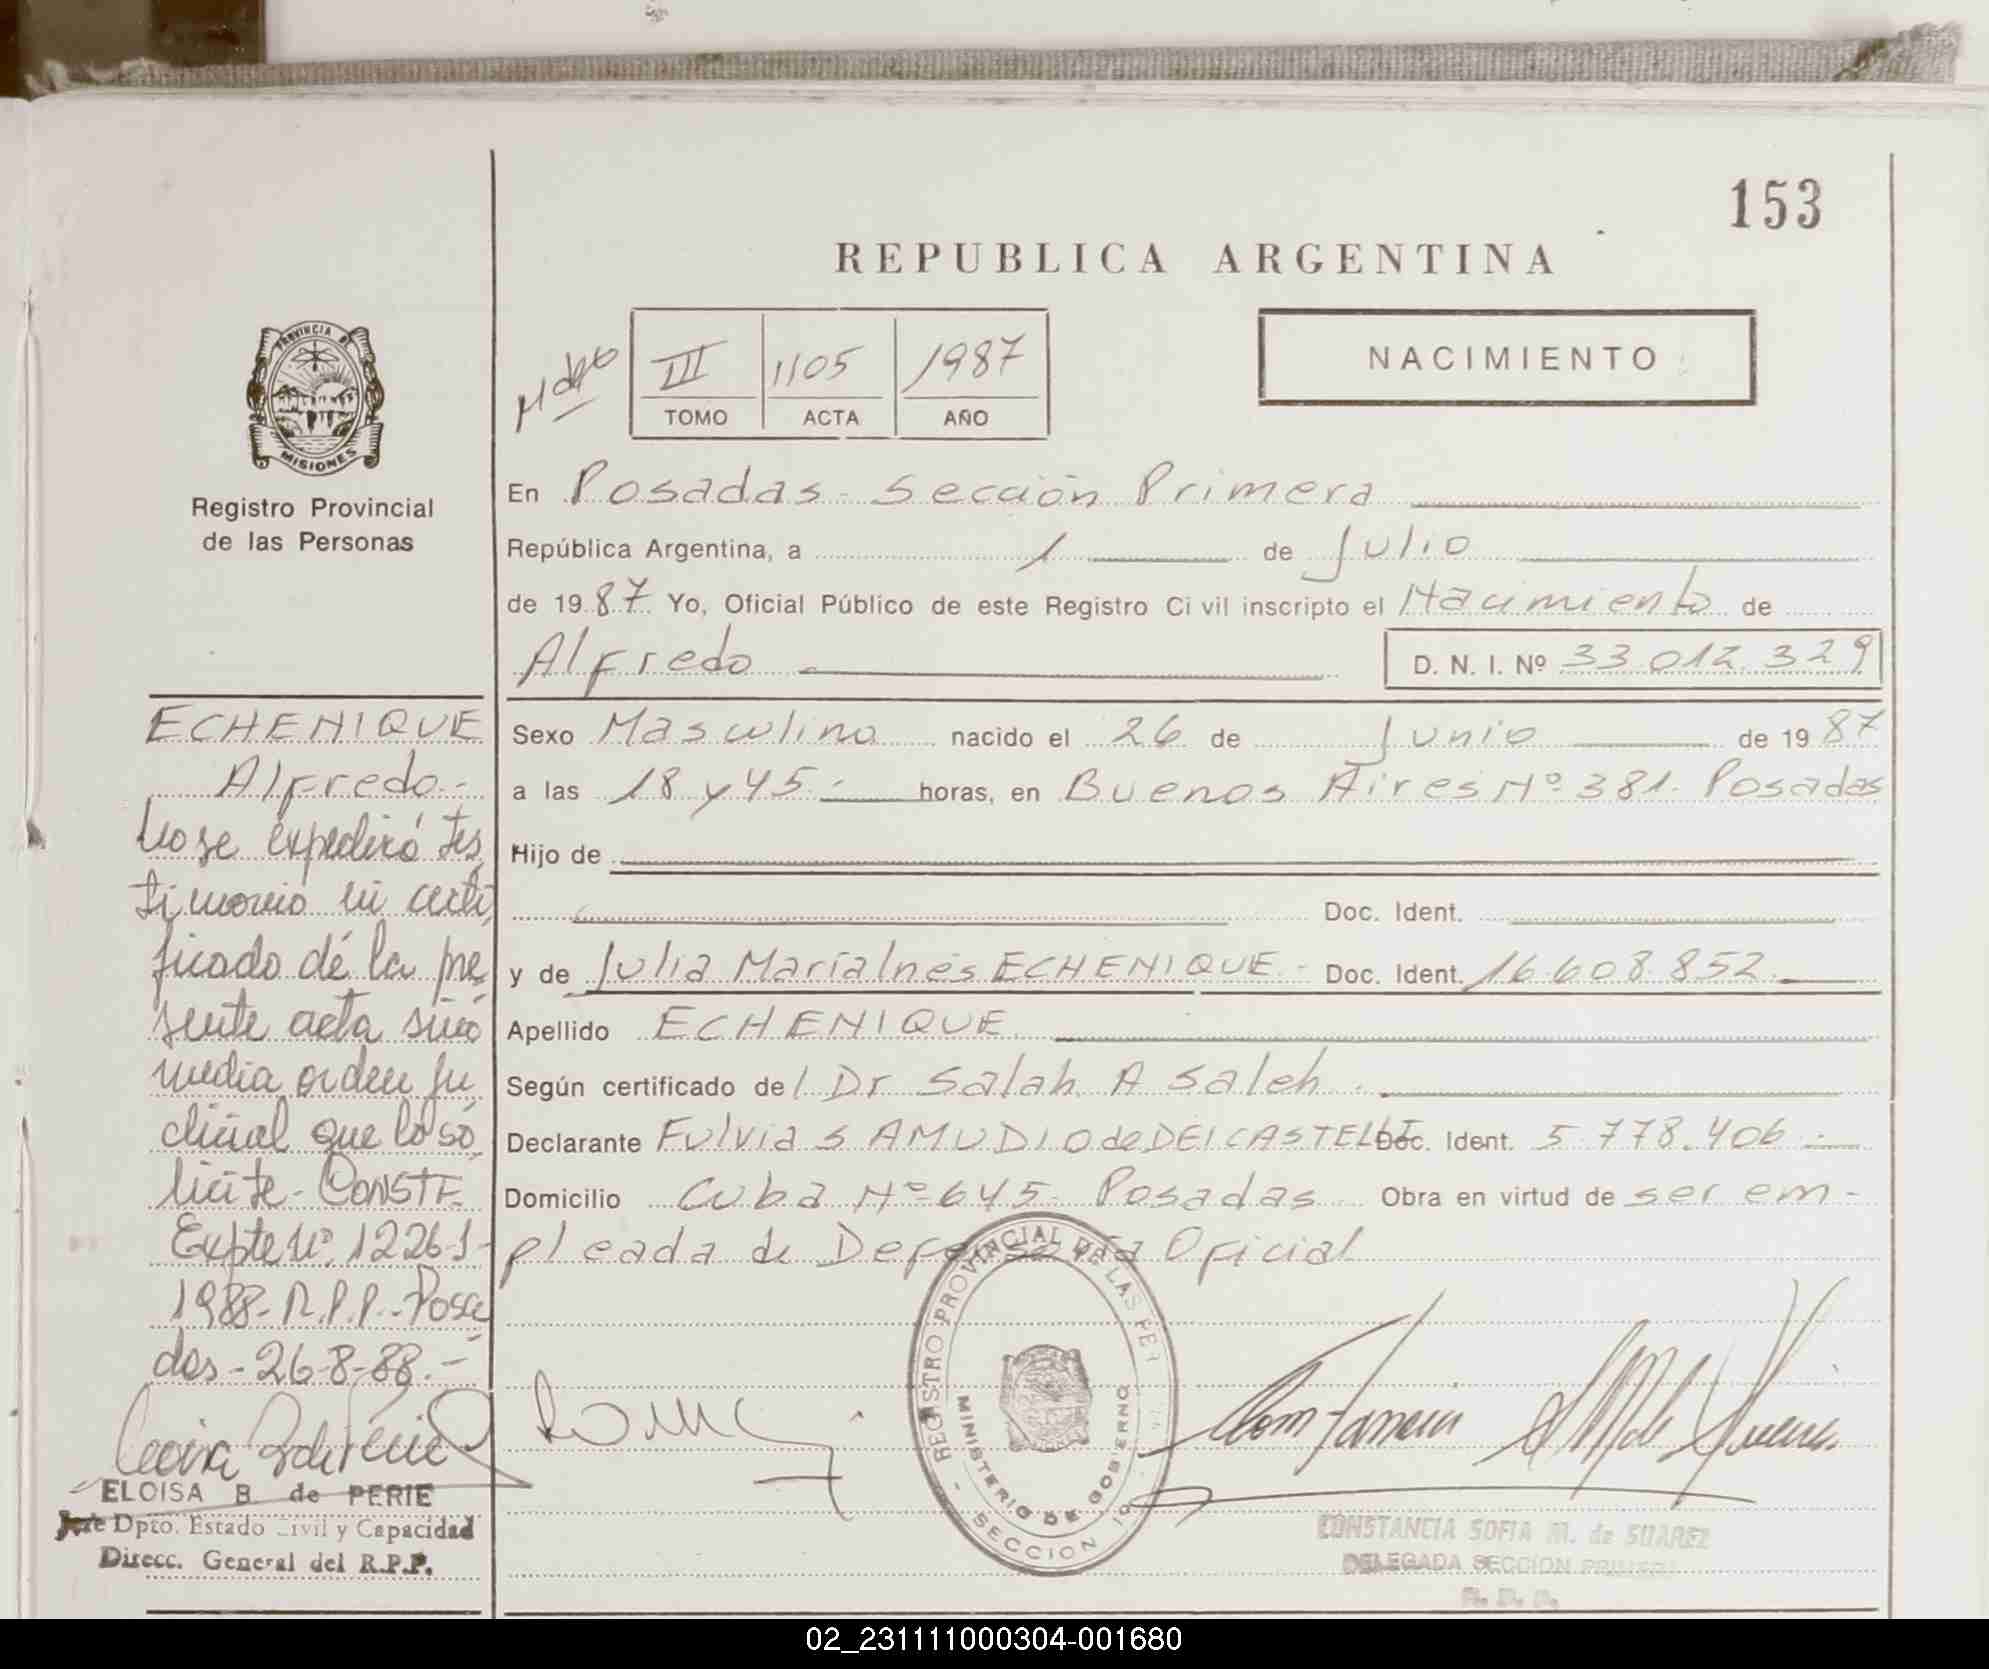 153
REPUBLICA ARGENTINA
III 1105 1987
TOMO ACTA AÑO
NACIMIENTO
PROVINCIA D
MISIONES
Registro Provincial
de las Personas
En Posadas - Sección Primera
República Argentina, a 1 de Julio
de 1987 Yo, Oficial Público de este Registro Civil inscripto el Nacimiento de
Alfredo D. N. I. Nº 33.012.329
Sexo Masculino nacido el 26 de Junio de 1987
a las 18 y 45 horas, en Buenos Aires Nº 381. Posadas
Hijo de
Doc. Ident.
y de Julia María Inés ECHENIQUE - Doc. Ident. 16.608.852
Apellido ECHENIQUE
Según certificado del Dr Salah A Saleh
Declarante Fulvia S AMUDIO de DEI CASTELLI Doc. Ident. 5.778.406
Domicilio Cuba Nº 645 Posadas Obra en virtud de ser em-
pleada de Defensoría Oficial
ECHENIQUE
Alfredo.-
No se expedirá tes
timonio ni certi
ficado de la pre
sente acta sino
media orden ju
dicial que lo so
licite - CONSTE
Expte Nº 1226-J-
1988- R.P.P.- Posa
das - 26-8-88.-
ELOISA B. de PERIE
Jefe Dpto. Estado Civil y Capacidad
Direcc. General del R.P.P.
REGISTRO PROVINCIAL DE LAS PER
MINISTERIO DE GOBIERNO
- SECCION 1º
CONSTANCIA SOFIA M. de SUAREZ
DELEGADA SECCION PRIMERA
02_231111000304-001680